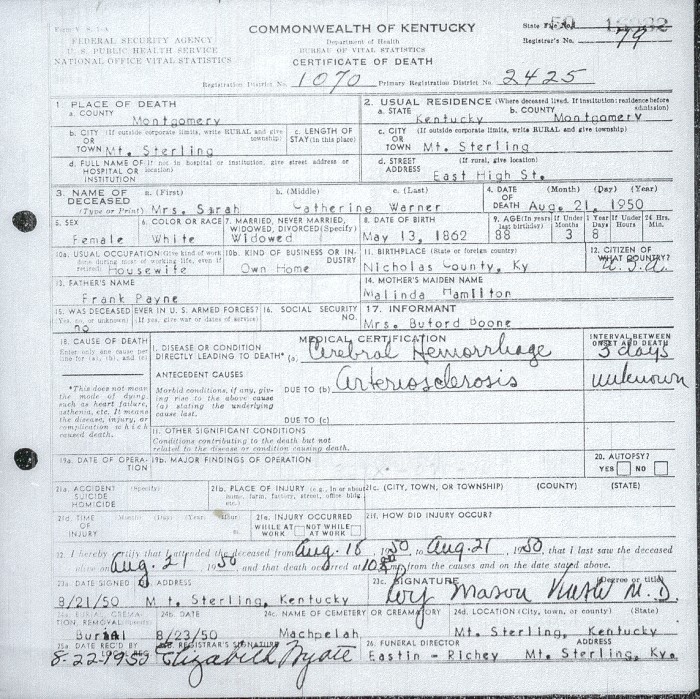 Form V. S. 1-A
FEDERAL SECURITY AGENCY
U. S. PUBLIC HEALTH SERVICE
NATIONAL OFFICE VITAL STATISTICS
COMMONWEALTH OF KENTUCKY
Department of Health
BUREAU OF VITAL STATISTICS
CERTIFICATE OF DEATH
State File No. 50
Registrar's No. 79
Registration District No. 1070 Primary Registration District No. 2425
1. PLACE OF DEATH
a. COUNTY
Montgomery
b. CITY (If outside corporate limits, write RURAL and give township)
OR
TOWN Mt. Sterling
c. LENGTH OF
STAY (in this place)
d. FULL NAME OF (If not in hospital or institution, give street address or location)
HOSPITAL OR
INSTITUTION
2. USUAL RESIDENCE (Where deceased lived. If institution: residence before admission)
a. STATE
Kentucky
b. COUNTY
Montgomery
c. CITY (If outside corporate limits, write RURAL and give township)
OR
TOWN Mt. Sterling
d. STREET (If rural, give location)
ADDRESS
East High St.
3. NAME OF DECEASED
(Type or Print)
a. (First) b. (Middle) c. (Last)
Mrs. Sarah Catherine Warner
4. DATE OF DEATH (Month) (Day) (Year)
Aug. 21, 1950
5. SEX
Female
6. COLOR OR RACE
White
7. MARRIED, NEVER MARRIED,
WIDOWED, DIVORCED (Specify)
Widowed
8. DATE OF BIRTH
May 13, 1862
9. AGE (In years last birthday) If Under 1 Year If Under 24 Hrs.
Months Days Hours Min.
88 3 8
10a. USUAL OCCUPATION (Give kind of work done during most of working life, even if retired)
Housewife
10b. KIND OF BUSINESS OR INDUSTRY
Own Home
11. BIRTHPLACE (State or foreign country)
Nicholas County, Ky
12. CITIZEN OF
WHAT COUNTRY?
U.S.A.
13. FATHER'S NAME
Frank Payne
14. MOTHER'S MAIDEN NAME
Malinda Hamilton
15. WAS DECEASED EVER IN U. S. ARMED FORCES?
(Yes, no, or unknown) (If yes, give war or dates of service)
no
16. SOCIAL SECURITY
NO.
17. INFORMANT
Mrs. Buford Boone
18. CAUSE OF DEATH
Enter only one cause per line for (a), (b), and (c)
*This does not mean the mode of dying, such as heart failure, asthenia, etc. It means the disease, injury, or complication which caused death.
MEDICAL CERTIFICATION
I. DISEASE OR CONDITION
DIRECTLY LEADING TO DEATH* (a) Cerebral Hemorrhage
INTERVAL BETWEEN
ONSET AND DEATH
5 days
ANTECEDENT CAUSES
Morbid conditions, if any, giving rise to the above cause (a) stating the underlying cause last.
DUE TO (b) arteriosclerosis
unknown
DUE TO (c)
II. OTHER SIGNIFICANT CONDITIONS
Conditions contributing to the death but not
related to the disease or condition causing death.
19a. DATE OF OPERATION
19b. MAJOR FINDINGS OF OPERATION
20. AUTOPSY?
YES NO
21a. ACCIDENT (Specify)
SUICIDE
HOMICIDE
21b. PLACE OF INJURY (e.g., in or about home, farm, factory, street, office bldg., etc.)
21c. (CITY, TOWN, OR TOWNSHIP) (COUNTY) (STATE)
21d. TIME (Month) (Day) (Year) (Hour)
OF
INJURY
21e. INJURY OCCURRED
WHILE AT WORK NOT WHILE AT WORK
21f. HOW DID INJURY OCCUR?
22. I hereby certify that I attended the deceased from Aug. 16, 1950 to Aug. 21, 1950, that I last saw the deceased
alive on Aug. 21 1950 and that death occurred at m., from the causes and on the date stated above.
23a. DATE SIGNED
8/21/50
ADDRESS
Mt. Sterling, Kentucky
23c. SIGNATURE (Degree or title)
Mason M. D.
24a. BURIAL, CREMATION, REMOVAL (Specify)
Burial
24b. DATE
8/23/50
24c. NAME OF CEMETERY OR CREMATORY
Machpelah
24d. LOCATION (City, town, or county) (State)
Mt. Sterling, Kentucky
25a. DATE REC'D BY LOCAL REG.
8-22-1950
REGISTRAR'S SIGNATURE
Elizabeth Wyatt
26. FUNERAL DIRECTOR ADDRESS
Eastin - Richey Mt. Sterling, Ky.